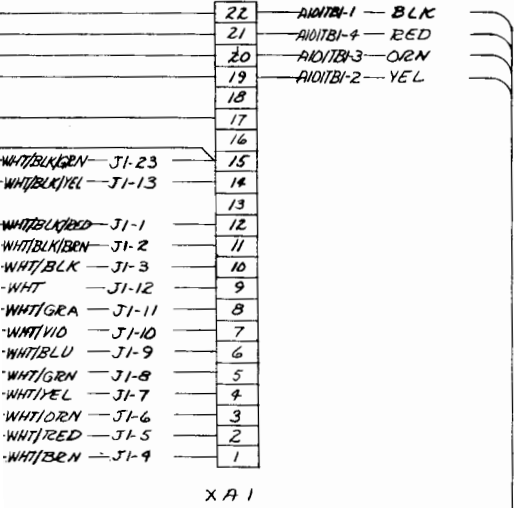 22 A101TB1-1 — BLK
21 A101TB1-4 — RED
20 A101TB1-3 — ORN
19 A101TB1-2 — YEL
18
17
16
WHT/BLK/GRN — J1-23 15
WHT/BLK/YEL — J1-13 14
13
WHT/BLK/RED — J1-1 12
WHT/BLK/BRN — J1-2 11
WHT/BLK — J1-3 10
WHT — J1-12 9
WHT/GRA — J1-11 8
WHT/VIO — J1-10 7
WHT/BLU — J1-9 6
WHT/GRN — J1-8 5
WHT/YEL — J1-7 4
WHT/ORN — J1-6 3
WHT/RED — J1-5 2
WHT/BRN — J1-4 1
XA1